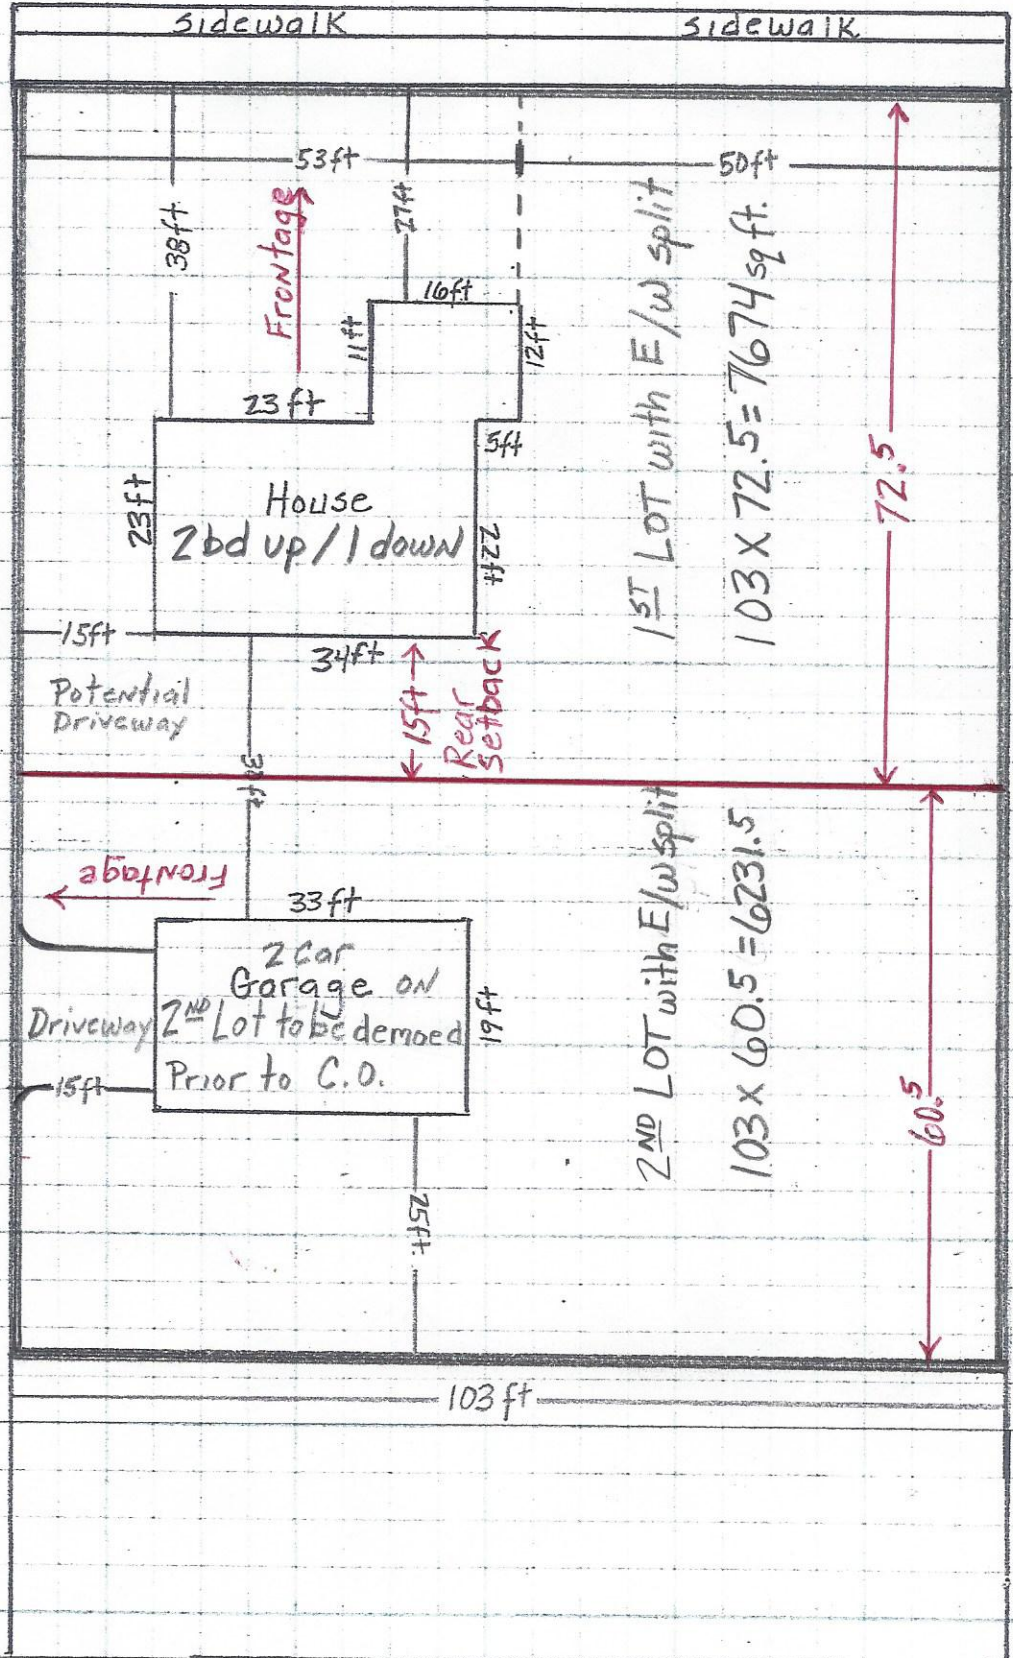 Sidewalk
Sidewalk
53ft
50ft
38ft
Frontage
27ft
16ft
11ft
12ft
23 ft
5ft
23ft
House
2bd up / 1 down
22ft
15ft
34ft
Potential
Driveway
15ft
Rear
Setback
1ST LOT with E/W split
103 X 72.5 = 7674 sq ft.
72.5
Frontage
33ft
2 Car
Garage ON
2ND Lot to be demoed
Prior to C.O.
Driveway
19ft
15ft
25ft
2ND LOT with E/W split
103 X 60.5 = 6231.5
60.5
103 ft